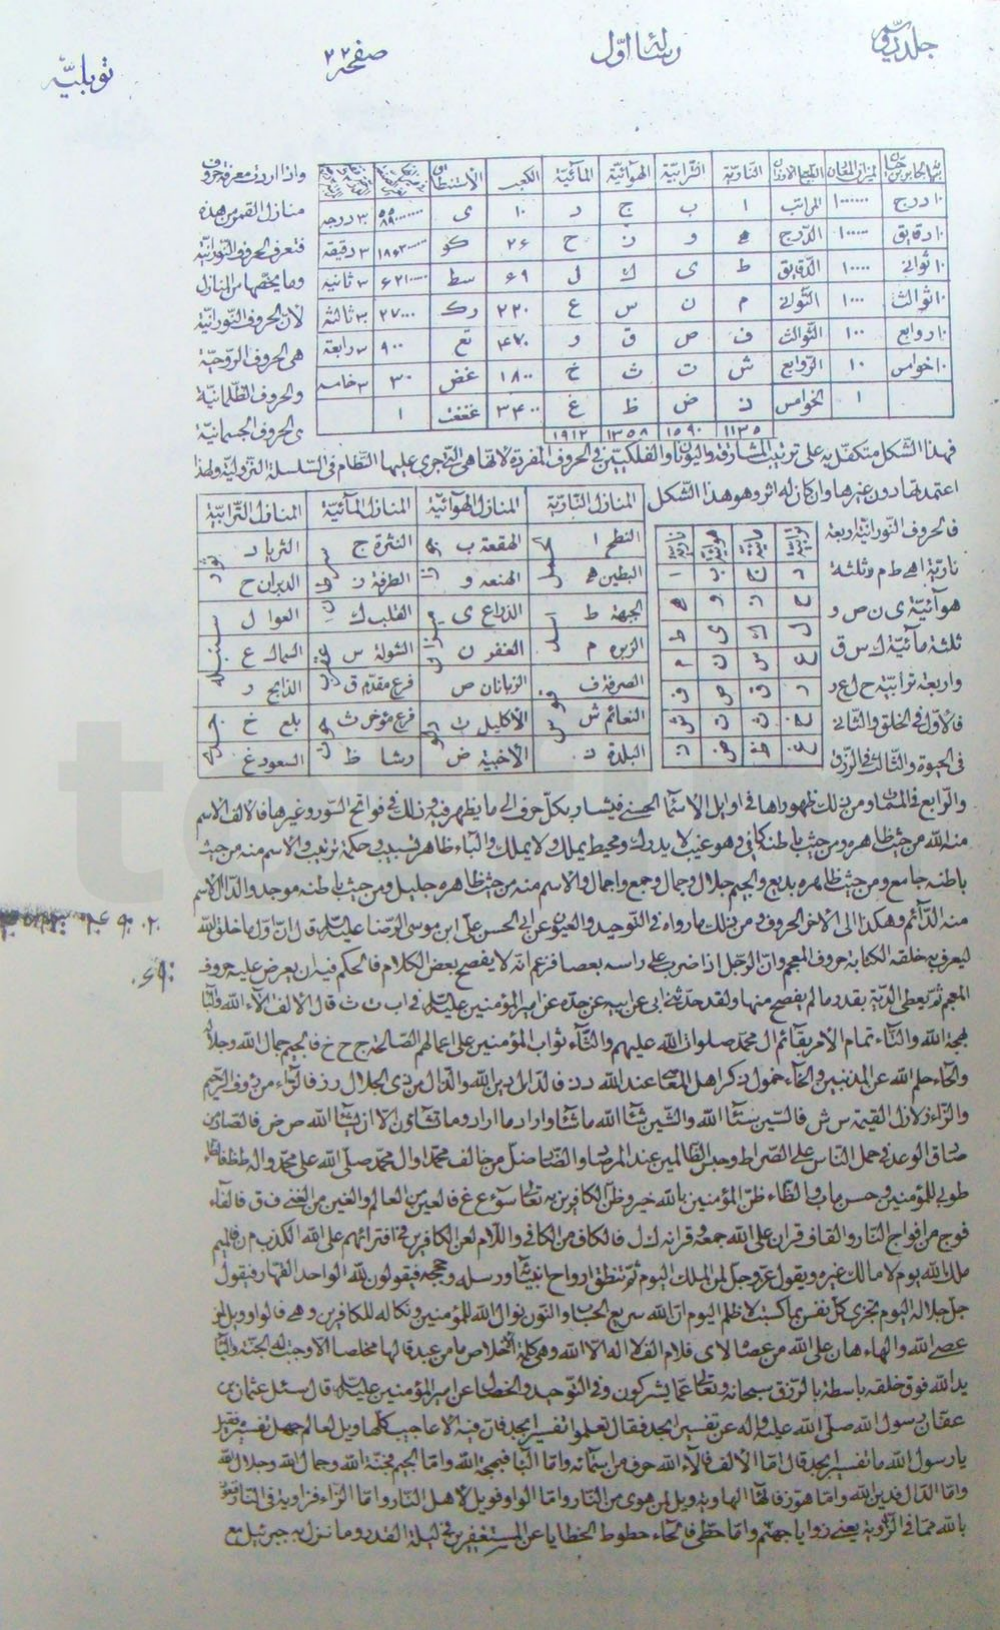 جلد سوم رسالهٔ اوّل صفحه ٢٢ توبليّه
النّاريّة التّرابيّة الهوآئيّة المآئيّة الكعب الأستنطاق
١٠ درج ١٠٠٠٠٠٠ المراتب ا ب ج د ١٠ ى ٣ درجه
١٠ دقايق ١٠٠٠٠٠ الدّرج ه و ز ح ٢۶ كو ٣ دقيقة
١٠ ثوانى ١٠٠٠٠ الدّقايق ط ى ك ل ۶٩ سط ٣ ثانية
١٠ ثوالث ١٠٠٠ الثّوانى م ن س ع ٢٢٠ رك ٢٧٠٠٠ ٣ ثالثة
١٠ روابع ١٠٠ الثّوالث ف ص ق ر ۴٧٠ تع ٩٠٠ ٣ رابعة
١٠ خوامس ١٠ الرّوابع ش ت ث خ ١٨٠٠ غض ٣٠ ٣ خامسه
١ الخوامس ذ ض ظ غ ٣۴٠٠ غغغت ١
١١٣٥ ١٥٩٠ ١٣٥٨ ١٩١٢
واذا اردت معرفة حروف
منازل القمر من هذه
فتعرف الحروف النّورانيّة
وما يخصّها من المنازل
لأنّ الحروف النّورانيّة
هى الحروف الرّوحيّة
والحروف الظّلمانيّة
ى الحروف الجسمانيّة
فهذا الشّكل متكفّل به على ترتيب المشارقة واليونان والفلكيّين فى الحروف المفردة لانّها هى الّتى جرى عليها النّظام فى السّلسلة النّزوليّة ولهذا
اعتمد بها دون غيرها وان كان له اثر وهو هذا الشّكل
المنازل النّاريّة المنازل الهوآئيّة المنازل المآئيّة المنازل التّرابيّة
النطح ا الهقعة ب النثرة ج الثريا د
البطين ه الهنعه و الطرفة ز الدبران ح
الجبهة ط الذراع ى القلب ك العوا ل
الزبره م الغفر ن الشولة س السماك ع
الصرفة ف الزبانان ص فرع مقدّم ق الذابح ر
النعائم ش الأكليل ت فرع مؤخر ث بلع خ
البلدة ذ الأخبية ض رشا ظ السعود غ
فالحروف النّورانيّة اربعة
ناريّة ا ه ط م وثلثة
هوآئيّة ى ن ص و
ثلثة مآئيّة ك س ق
واربعة ترابيّة ح ل ع ر
فالأوّل فى الخلق والثّانى
فى الحيوة والثّالث فى الرّزق
والرّابع فى الممات ومن ذلك ظهورها فى اوايل الاسمآ الحسنى فيشار بكلّ حرف الى ما يظهر فيه وذلك فى فواتح السّور وغيرها فالالف الاسم
منه الله من حيث ظاهره ومن حيث باطنه كافى وهو غيب لا يدرك ومحيط يملك ولا يملك والباء ظاهر تسبيب فى حكمة ترتيب والاسم منه من حيث
باطنه جامع ومن حيث ظاهره بديع والجيم جلال وجمال وجمع واجمال والاسم منه من حيث ظاهره جليل ومن حيث باطنه موجد والدال الاسم
منه الدّآئم وهكذا الى الاخر الحروف ومن ذلك ما رواه فى التوحيد والعيون عن ابى الحسن على ابن موسى الرّضا عليه السلم قال انّ اوّل ما خلق الله
ليعرف به خلقه الكتابة حروف المعجم وانّ الرّجل اذا ضرب على راسه بعصا فزعم انّه لا يفصح ببعض الكلام فالحكم فيه ان يعرض عليه حروف
المعجم ثمّ يعطى الدّية بقدر ما لم يفصح منها ولقد حدّثنى ابى عن ابيه عن جدّه عن امير المؤمنين عليه السلم فى ا ب ت ث قال الالف الآء الله والبآ
بهجة الله والتّآء تمام الامر بقآئم ال محمّد صلوات الله عليهم والثّآء ثواب المؤمنين على اعمالهم الصّالحة ج ح خ فالجيم جمال الله وجلاله
والحآء حلم الله عن المذنبين والخآء خمول ذكر اهل المعاصى عند الله د ذ فالدّال دين الله والذّال من ذى الجلال ر ز فالرّآء من الرّؤف الرّحيم
والزّآء زلازل القيمة س ش فالسّين سنآ الله والشّين شآء الله ما شآء واراد ما اراد وما تشاؤن الا ان يشآ الله ص ض فالصّاد من
صادق الوعد فى حمل النّاس على الصّراط وحبس الظّالمين عند المرصاد والضّاد ضلّ من خالف محمّدا وال محمّد صلّى الله على محمّد واله ط ظ فالطاء
طوبى للمؤمنين وحسن مآب والظّاء ظنّ المؤمنين بالله خير وظنّ الكافرين به تعالى سوء ع غ فالعين من العالم والغين من الغنى ف ق فالفآء
فوج من افواج النّار والقاف قران على الله جمعه وقرانه ك ل فالكاف من الكافى واللّام لعن الكافرين فى افترائهم على الله الكذب م ن فالميم
ملك الله يوم لا مالك غيره ويقول عزّ وجلّ لمن الملك اليوم ثمّ تنطق ارواح انبيآئه ورسله وحججه فيقولون لله الواحد القهّار فيقول
جلّ جلاله اليوم تجزى كلّ نفس بما كسبت لا ظلم اليوم انّ الله سريع الحساب والنّون نوال الله للمؤمنين ونكاله للكافرين و ه فالواو ويل لمن
عصى الله والهآء هان على الله من عصاه لا ى فلام الف لا اله الّا الله وهى كلمة الاخلاص ما من عبد قالها مخلصا الّا وجبت له الجنّة واليآ
يد الله فوق خلقه باسطة بالرّزق سبحانه وتعالى عمّا يشركون وفى التّوحيد والخصال عن امير المؤمنين عليه السلم قال سئل عثمان بن
عفّان رسول الله صلّى الله عليه واله عن تفسير ابجد فقال تعلموا تفسير ابجد فانّ فيه الاعاجيب كلّها ويل لعالم جهل تفسيره فقيل
يا رسول الله ما تفسير ابجد قال امّا الالف فالآء الله حرف من اسمآئه وامّا البآ فبهجة الله وامّا الجيم فجنّة الله وجمال الله وجلال الله
وامّا الدّال فدين الله وامّا هوّز فالهآء الهاوية ويل لمن هوى من النّار وامّا الواو فويل لاهل النّار وامّا الزّآء فزاوية فى النّار فنعوذ
بالله ممّا فى الزّاوية يعنى زوايا جهنّم وامّا حطّى فالحآء حطوط الخطايا عن المستغفرين فى ليلة القدر وما نزل به جبرئيل مع